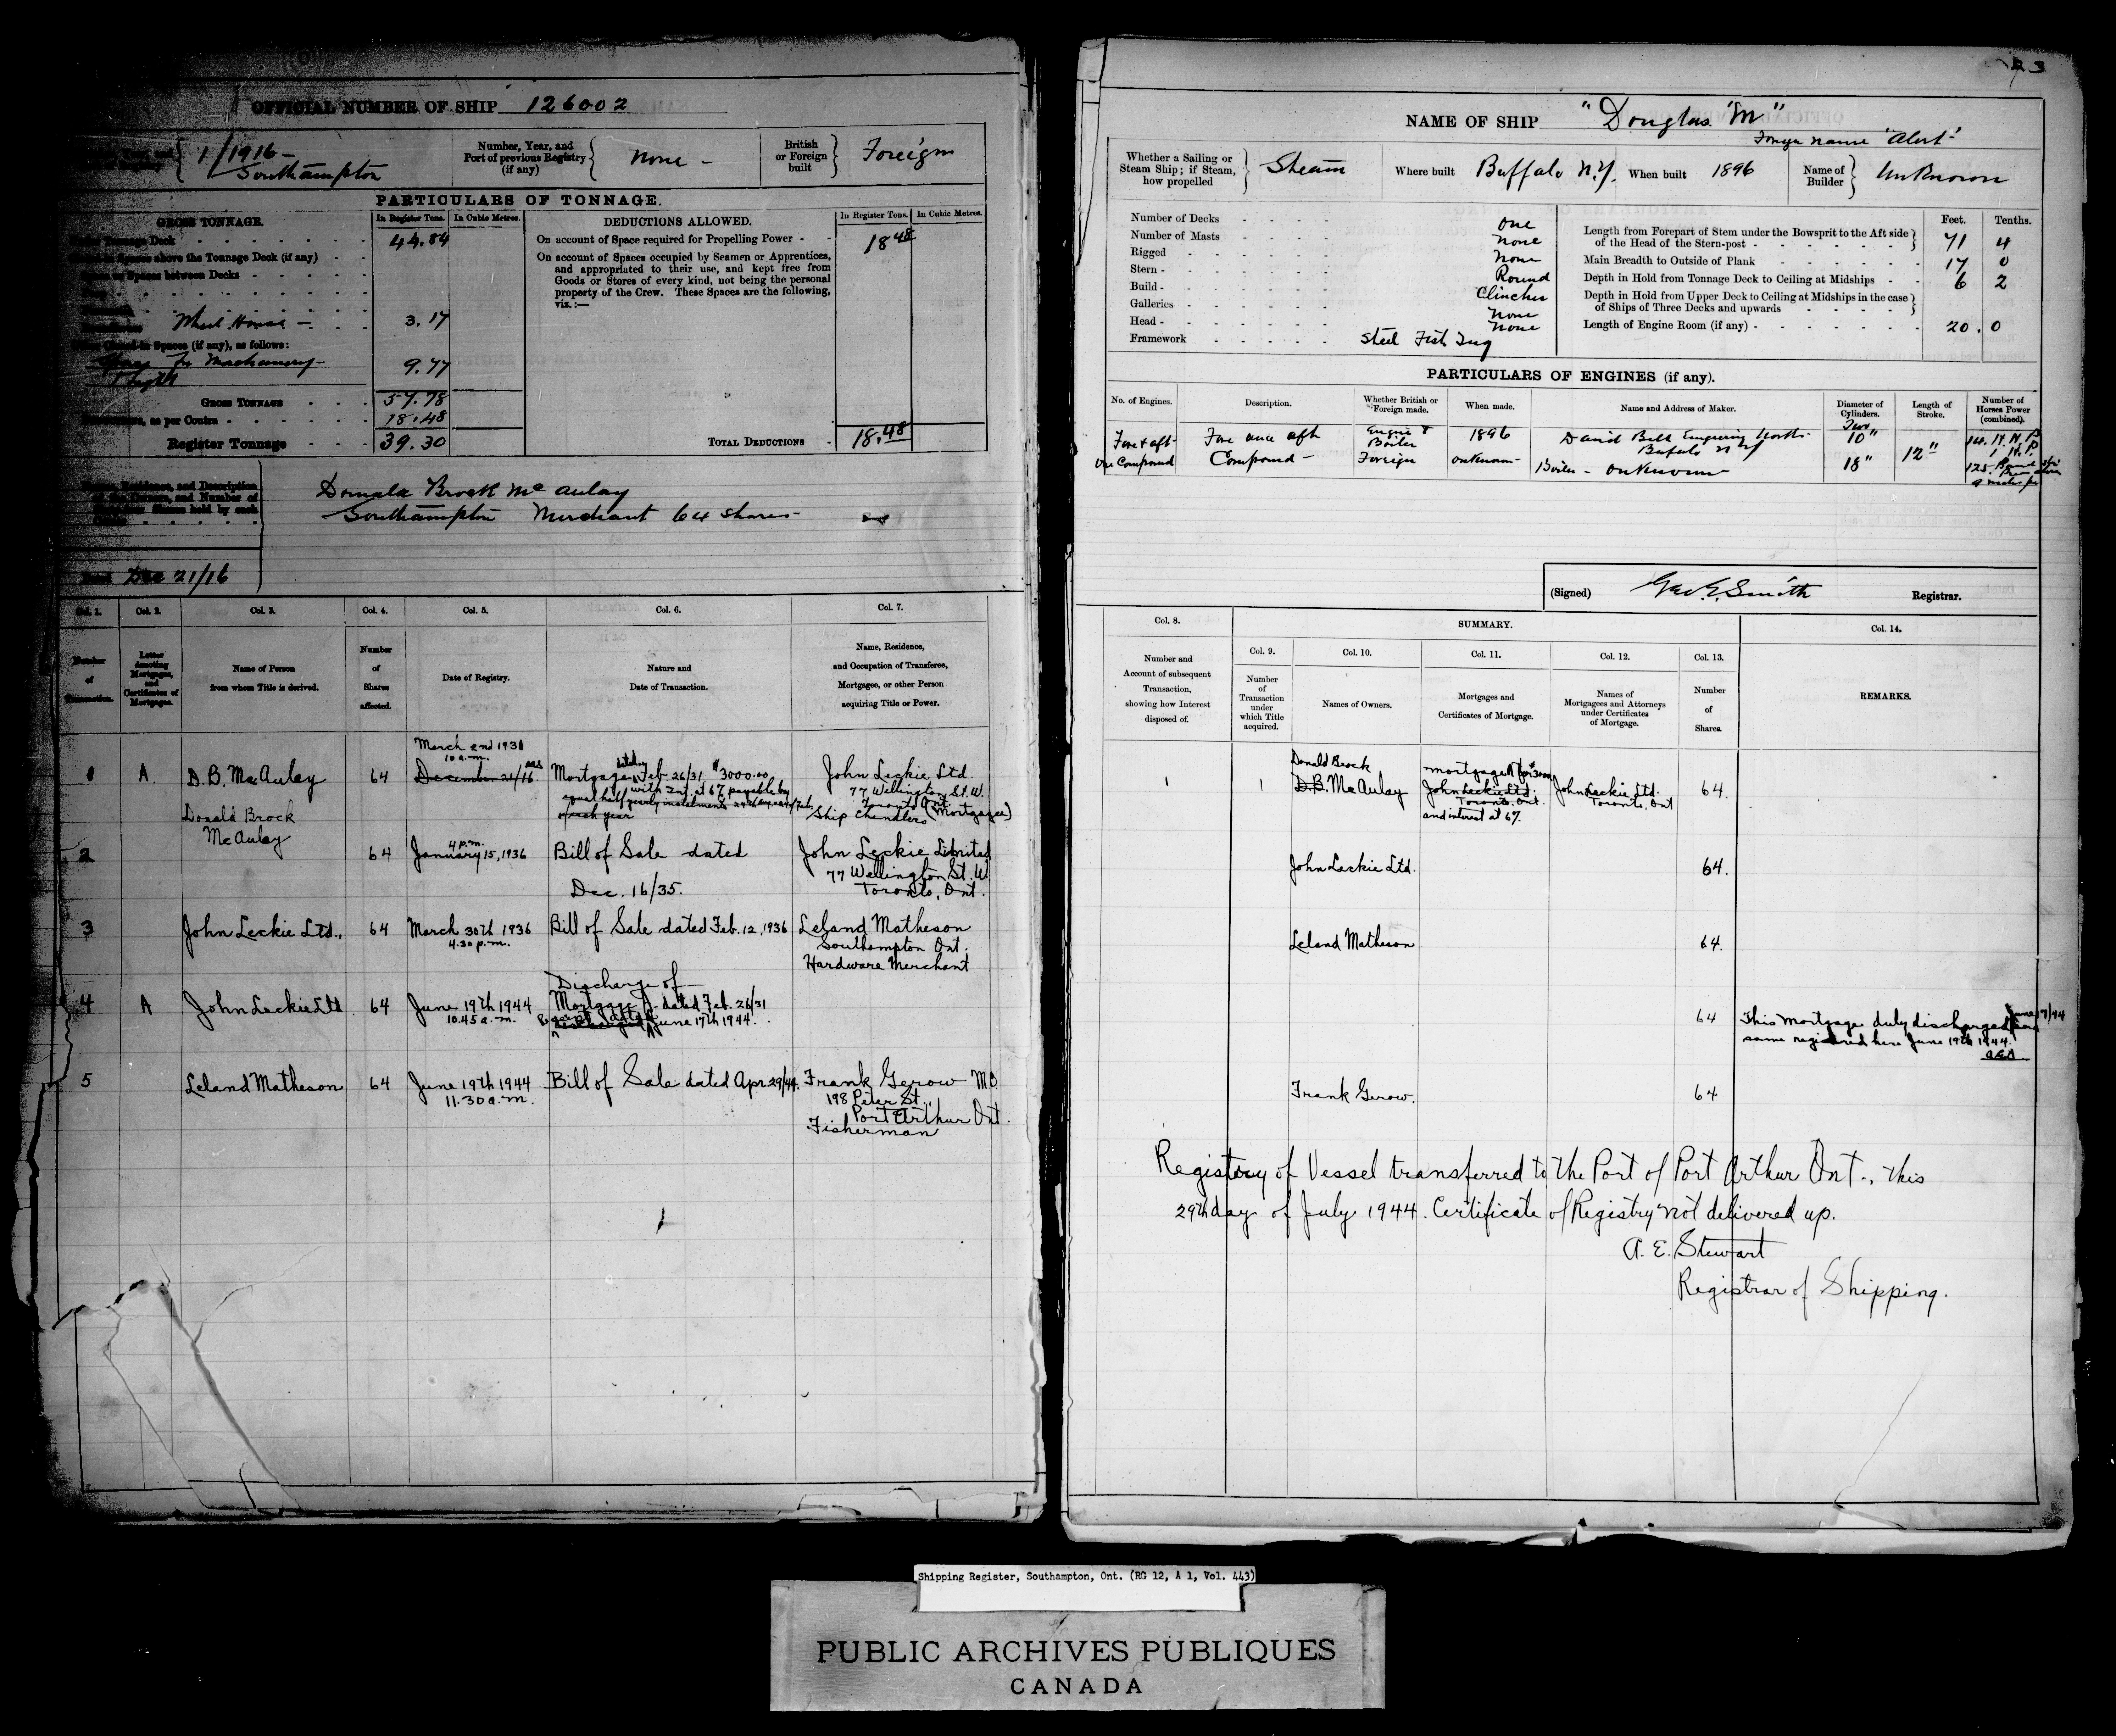 OFFICIAL NUMBER OF SHIP 126002
1/1916 -
Southampton
Number, Year, and
Port of previous Registry
(if any)
none -
British
or Foreign
built
Foreign
PARTICULARS OF TONNAGE.
GROSS TONNAGE.
In Register Tons.
In Cubic Metres.
DEDUCTIONS ALLOWED.
In Register Tons.
In Cubic Metres.
Tonnage Deck
44.84
On account of Space required for Propelling Power -
18 48
Spaces above the Tonnage Deck (if any)
or Spaces between Decks
On account of Spaces occupied by Seamen or Apprentices,
and appropriated to their use, and kept free from
Goods or Stores of every kind, not being the personal
property of the Crew. These Spaces are the following,
viz.:—
Wheel House -
3.17
Spaces (if any), as follows:
for Machinery -
9.77
GROSS TONNAGE
57.78
as per Contra
18.48
Register Tonnage
39.30
TOTAL DEDUCTIONS
18.48
Residence, and Description
of the Owners, and Number of
Shares held by each
Donald Brock McAulay
Southampton Merchant 64 shares -
Dated Dec 21/16
Col. 1.
Col. 2.
Col. 3.
Col. 4.
Col. 5.
Col. 6.
Col. 7.
Number
of
Transaction.
Letter
denoting
Mortgages,
and
Certificates of
Mortgages.
Name of Person
from whom Title is derived.
Number
of
Shares
affected.
Date of Registry.
Nature and
Date of Transaction.
Name, Residence,
and Occupation of Transferee,
Mortgagee, or other Person
acquiring Title or Power.
1
A.
D.B. McAulay
64
March 2nd 1931
10 a.m.
December 21/16.
Mortgage dated Feb. 26/31, $3000.00
with Int. at 6% payable by
equal half yearly instalments
of each year
John Leckie Ltd.
77 Wellington St. W.
Toronto Ont.
Ship Chandlers (Mortgagee)
2
Donald Brock
McAulay
64
4 p.m.
January 15, 1936
Bill of Sale dated
Dec. 16/35.
John Leckie Limited
77 Wellington St. W.
Toronto, Ont.
3
John Leckie Ltd.,
64
March 30th 1936
4.30 p.m.
Bill of Sale dated Feb. 12, 1936
Leland Matheson
Southampton Ont.
Hardware Merchant
4
A
John Leckie Ltd
64
June 19th 1944
10.45 a.m.
Discharge of
Mortgage A. dated Feb. 26/31
June 17th 1944.
5
Leland Matheson
64
June 19th 1944
11.30 a.m.
Bill of Sale dated Apr 29/44.
Frank Gerow
198 Peter St.,
Port Arthur Ont.
Fisherman
3
NAME OF SHIP "Douglas "M"
name "Alert"
Whether a Sailing or
Steam Ship; if Steam,
how propelled
Steam
Where built Buffalo N.Y.
When built 1896
Name of
Builder
Unknown
Number of Decks
one
Number of Masts
none
Rigged
none
Stern -
Round
Build -
Clincher
Galleries
none
Head -
none
Framework
Steel Fish Tug
Feet.
Tenths.
Length from Forepart of Stem under the Bowsprit to the Aft side
of the Head of the Stern-post -
71
4
Main Breadth to Outside of Plank
17
0
Depth in Hold from Tonnage Deck to Ceiling at Midships -
6
2
Depth in Hold from Upper Deck to Ceiling at Midships in the case
of Ships of Three Decks and upwards
Length of Engine Room (if any) -
20.
0
PARTICULARS OF ENGINES (if any).
No. of Engines.
Description.
Whether British or
Foreign made.
When made.
Name and Address of Maker.
Diameter of
Cylinders.
Length of
Stroke.
Number of
Horses Power
(combined).
Fore & aft
One Compound
Fore and aft
Compound -
Engine &
Boiler
Foreign
1896
unknown -
David Bell Engineering Works
Buffalo N Y
Boiler - unknown
Two
10"
18"
12"
14. N.H.P
(Signed) Geo. E. Smith Registrar.
Col. 8.
SUMMARY.
Col. 9.
Col. 10.
Col. 11.
Col. 12.
Col. 13.
Col. 14.
Number and
Account of subsequent
Transaction,
showing how Interest
disposed of.
Number
of
Transaction
under
which Title
acquired.
Names of Owners.
Mortgages and
Certificates of Mortgage.
Names of
Mortgagees and Attorneys
under Certificates
of Mortgage.
Number
of
Shares.
REMARKS.
1
1
Donald Brock
D.B. McAulay
Mortgage A for $3000
John Leckie Ltd.
Toronto, Ont.
and interest at 6%.
John Leckie Ltd.
Toronto, Ont
64.
John Leckie Ltd.
64.
Leland Matheson
64.
64
This mortgage duly discharged June 17/44 and
same registered here June 19th 1944.
Frank Gerow.
64
Registry of Vessel transferred to the Port of Port Arthur Ont., this
29th day of July 1944. Certificate of Registry not delivered up.
A. E. Stewart
Registrar of Shipping.
Shipping Register, Southampton, Ont. (RG 12, A 1, Vol. 443)
PUBLIC ARCHIVES PUBLIQUES
CANADA